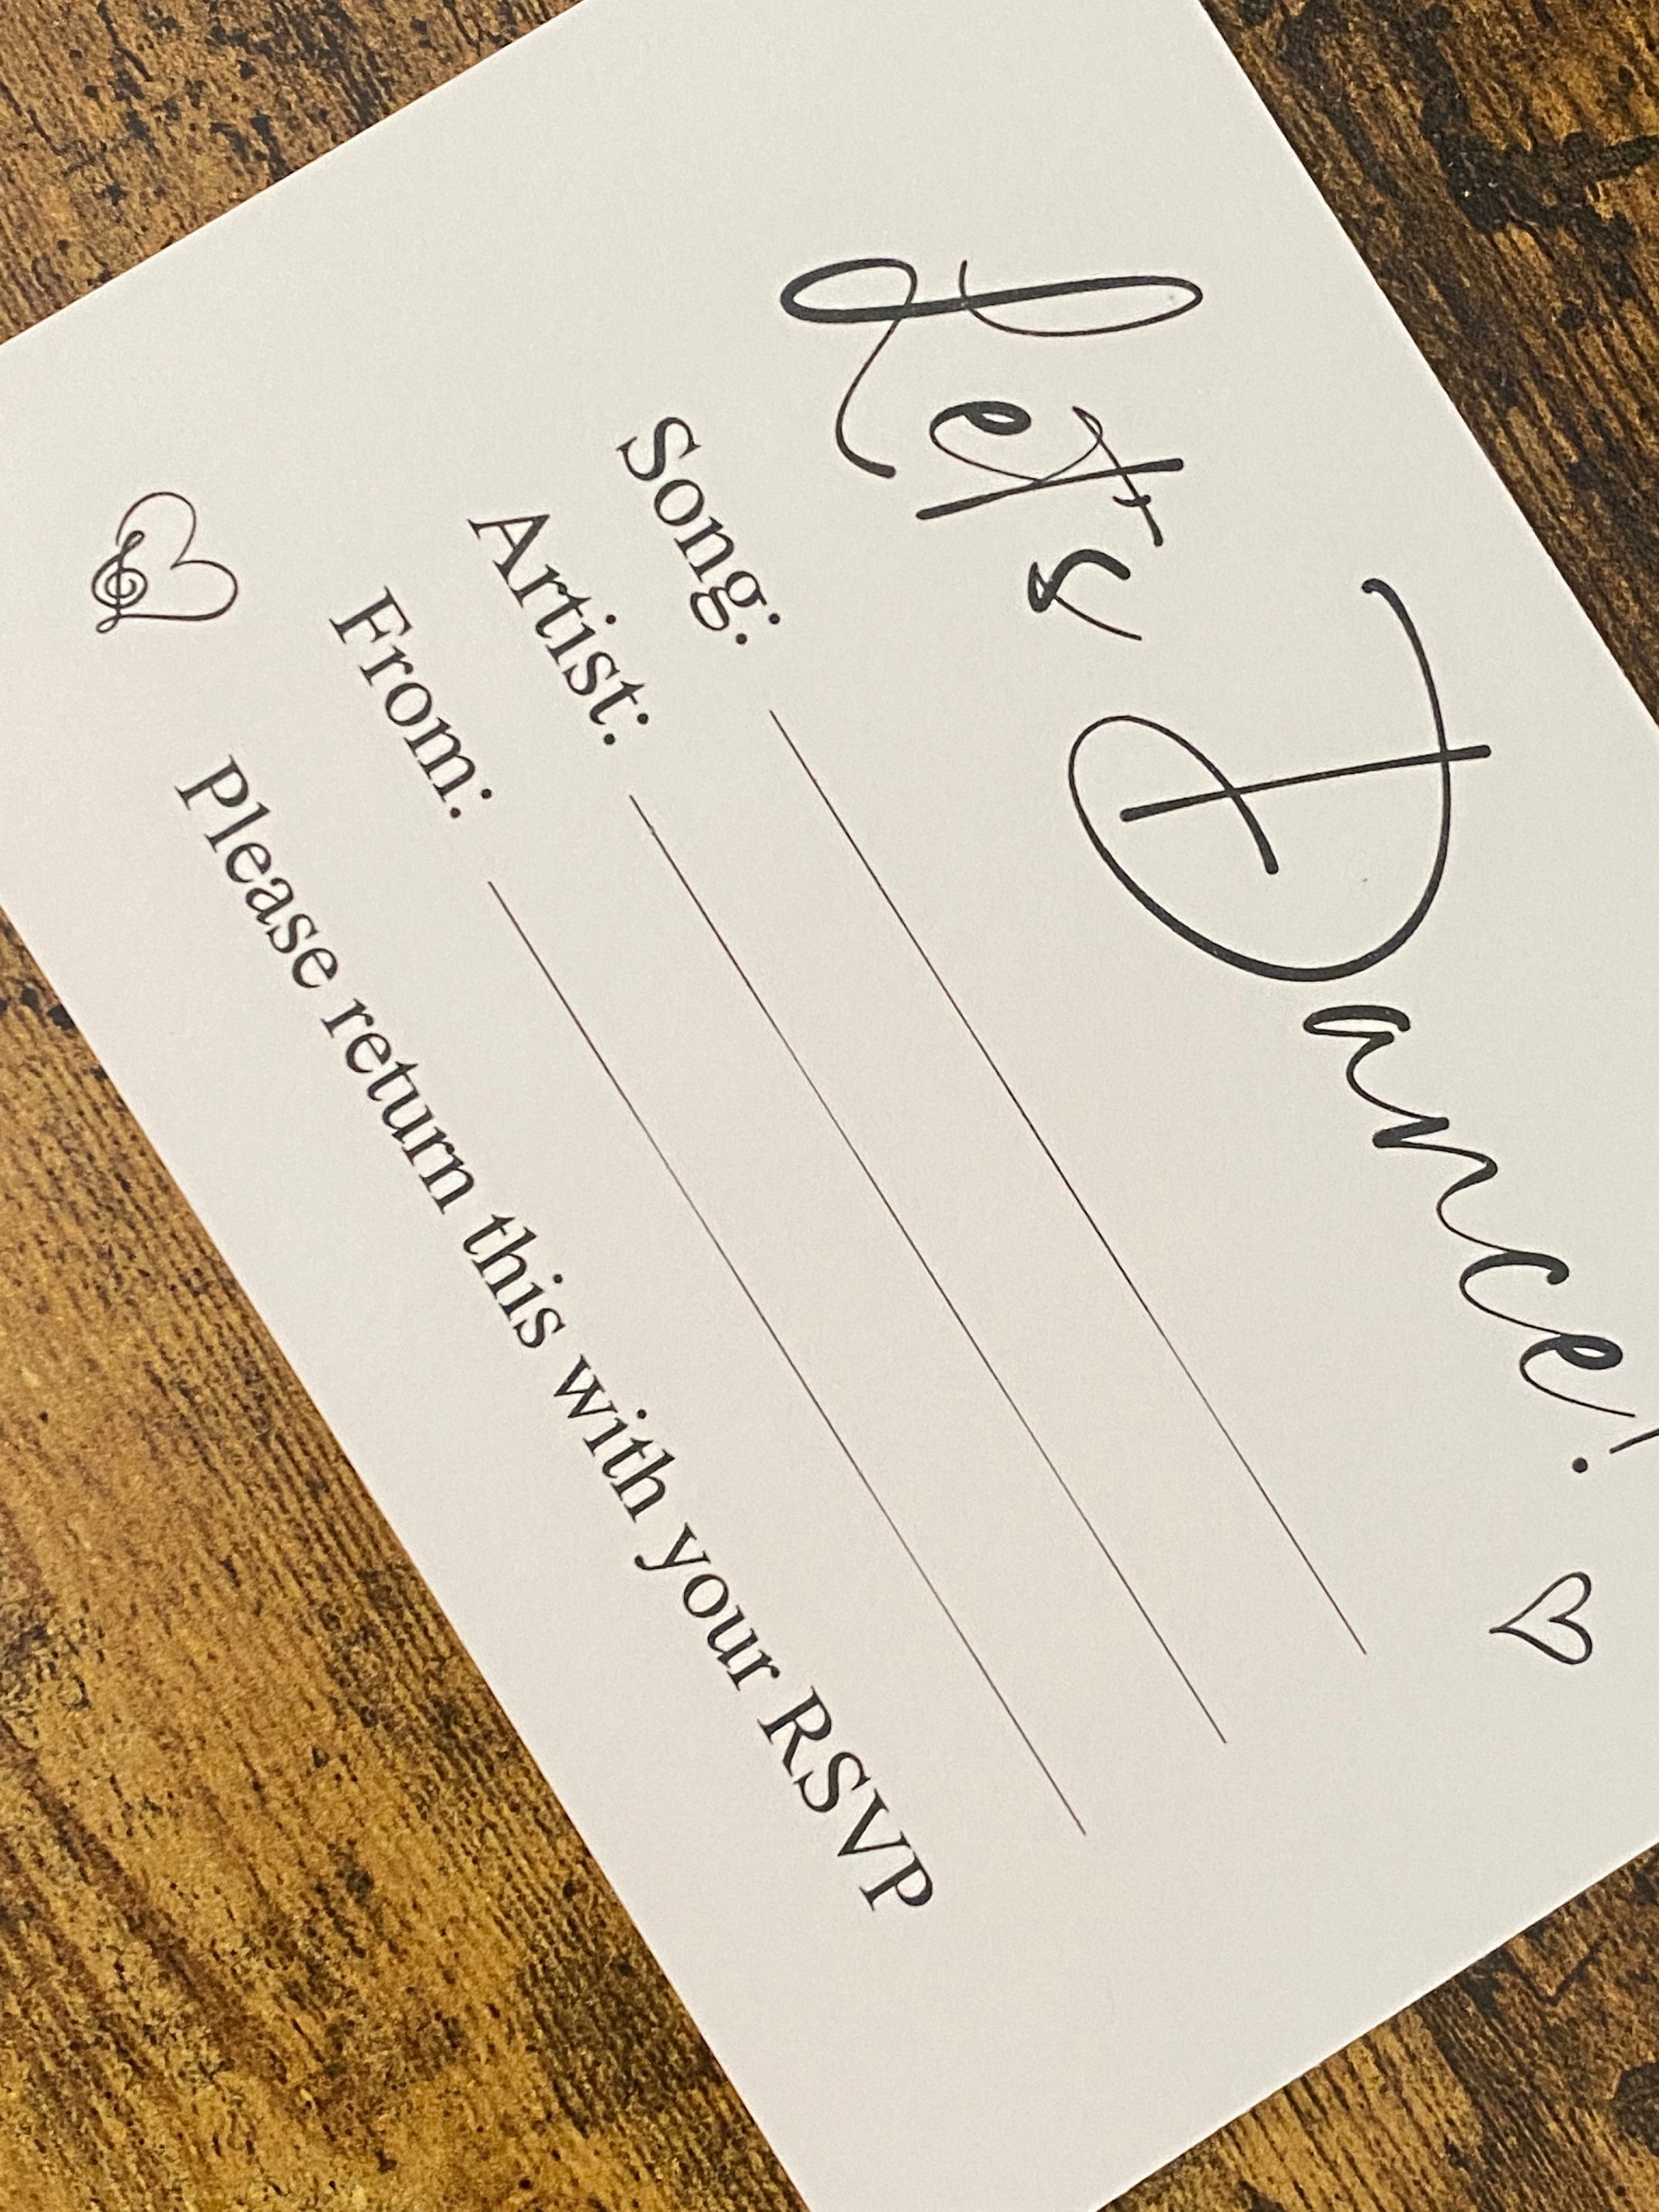 Let's Dance!
Song:
Artist:
From:
Please return this with your RSVP